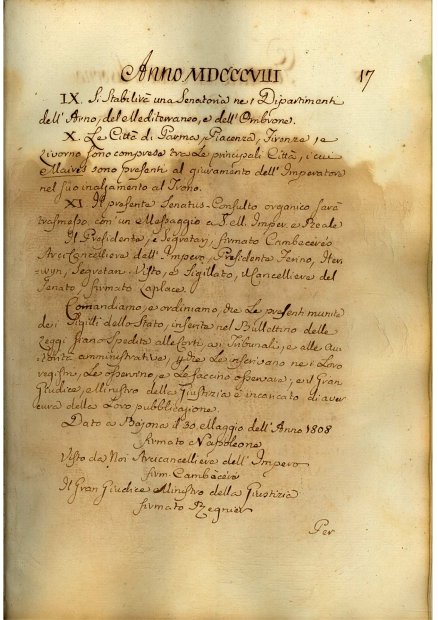 Anno MDCCCVIII 17
IX. Si Stabilirà una Senatoria ne i Dipartimenti
dell' Arno, del Mediterraneo, e dell' Ombrone.
X. Le Città di Parma, Piacenza, Firenze, e
Livorno sono comprese tra Le principali Città, i cui
Maires sono presenti al giuramento dell' Imperatore
nel suo inalzamento al Trono.
XI. Il presente Senatus-Consulto organico sarà
trasmesso con un Messaggio a S. M. Imper. e Reale
Il Presidente, e Segretari, firmato Cambeceres
Arcicancelliere dell' Impero, Presidente
Segretari. Visto, e Sigillato, il Cancelliere del
Senato firmato Laplace
Comandiamo, e ordiniamo, che Le presenti munite
dei Sigilli dello Stato, inserite nel Bullettino delle
Leggi siano Spedite alle Corti, ai Tribunali, e alle Au=
torità amministrative, che Le inscrivano ne i Loro
registri, Le osservino, e Le faccino osservare, e il Gran
Giudice, Ministro della Giustizia è incaricato di aver
cura della Loro pubblicazione.
Dato a Bajona il 30. Maggio dell' Anno 1808
firmato Napoleone
Visto da Noi Arcicancelliere dell' Impero
firm. Cambacères
Il Gran Giudice Ministro della Giustizia
firmato Regnier
Per